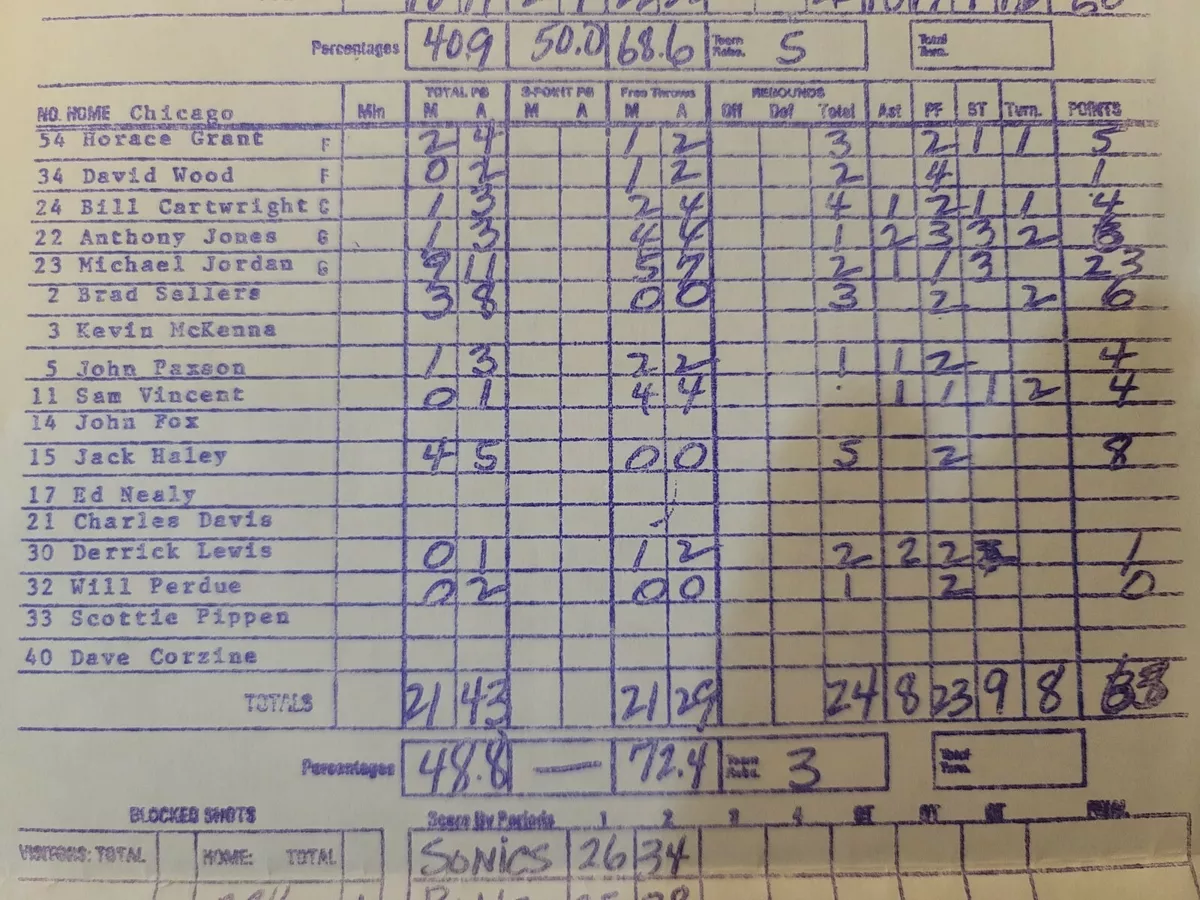 Percentages 40.9 50.0 68.6 Team Rebs. 5 Total Turn.
TOTAL FG 3-POINT FG Free Throws REBOUNDS
NO. HOME Chicago Min M A M A M A Off Def Total Ast PF ST Turn. POINTS
54 Horace Grant F 2 4 1 2 3 2 1 1 5
34 David Wood F 0 2 1 2 2 4 1
24 Bill Cartwright C 1 3 2 4 4 1 2 1 1 4
22 Anthony Jones G 1 3 4 4 1 2 3 3 2 6
23 Michael Jordan G 9 11 5 7 2 1 1 3 23
2 Brad Sellers 3 8 0 0 3 2 2 6
3 Kevin McKenna
5 John Paxson 1 3 2 2 1 1 2 4
11 Sam Vincent 0 1 4 4 1 1 1 2 4
14 John Fox
15 Jack Haley 4 5 0 0 5 2 8
17 Ed Nealy
21 Charles Davis
30 Derrick Lewis 0 1 1 2 2 2 2 1
32 Will Perdue 0 2 0 0 1 2 0
33 Scottie Pippen
40 Dave Corzine
TOTALS 21 43 21 29 24 8 23 9 8 63
Percentages 48.8 — 72.4 Team Rebs. 3 Total Turn.
BLOCKED SHOTS Score By Periods 1 2 3 4 OT OT OT FINAL
VISITORS: TOTAL HOME: TOTAL SONICS 26 34